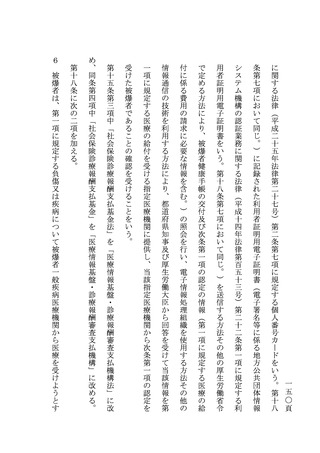 一五〇頁
に関する法律（平成二十五年法律第二十七号）第二条第七項に規定する個人番号カードをいう。第十八
条第七項において同じ。）に記録された利用者証明用電子証明書（電子署名等に係る地方公共団体情報
システム機構の認証業務に関する法律（平成十四年法律第百五十三号）第二十二条第一項に規定する利
用者証明用電子証明書をいう。第十八条第七項において同じ。）を送信する方法その他の厚生労働省令
で定める方法により、被爆者健康手帳の交付及び次条第一項の認定の情報（第一項に規定する医療の給
付に係る費用の請求に必要な情報を含む。）の照会を行い、電子情報処理組織を使用する方法その他の
情報通信の技術を利用する方法により、都道府県知事及び厚生労働大臣から回答を受けて当該情報を第
一項に規定する医療の給付を受ける指定医療機関に提供し、当該指定医療機関から次条第一項の認定を
受けた被爆者であることの確認を受けることをいう。
第十五条第三項中「社会保険診療報酬支払基金法」を「医療情報基盤・診療報酬審査支払機構法」に改
め、同条第四項中「社会保険診療報酬支払基金」を「医療情報基盤・診療報酬審査支払機構」に改める。
第十八条に次の二項を加える。
６　被爆者は、第一項に規定する負傷又は疾病について被爆者一般疾病医療機関から医療を受けようとす